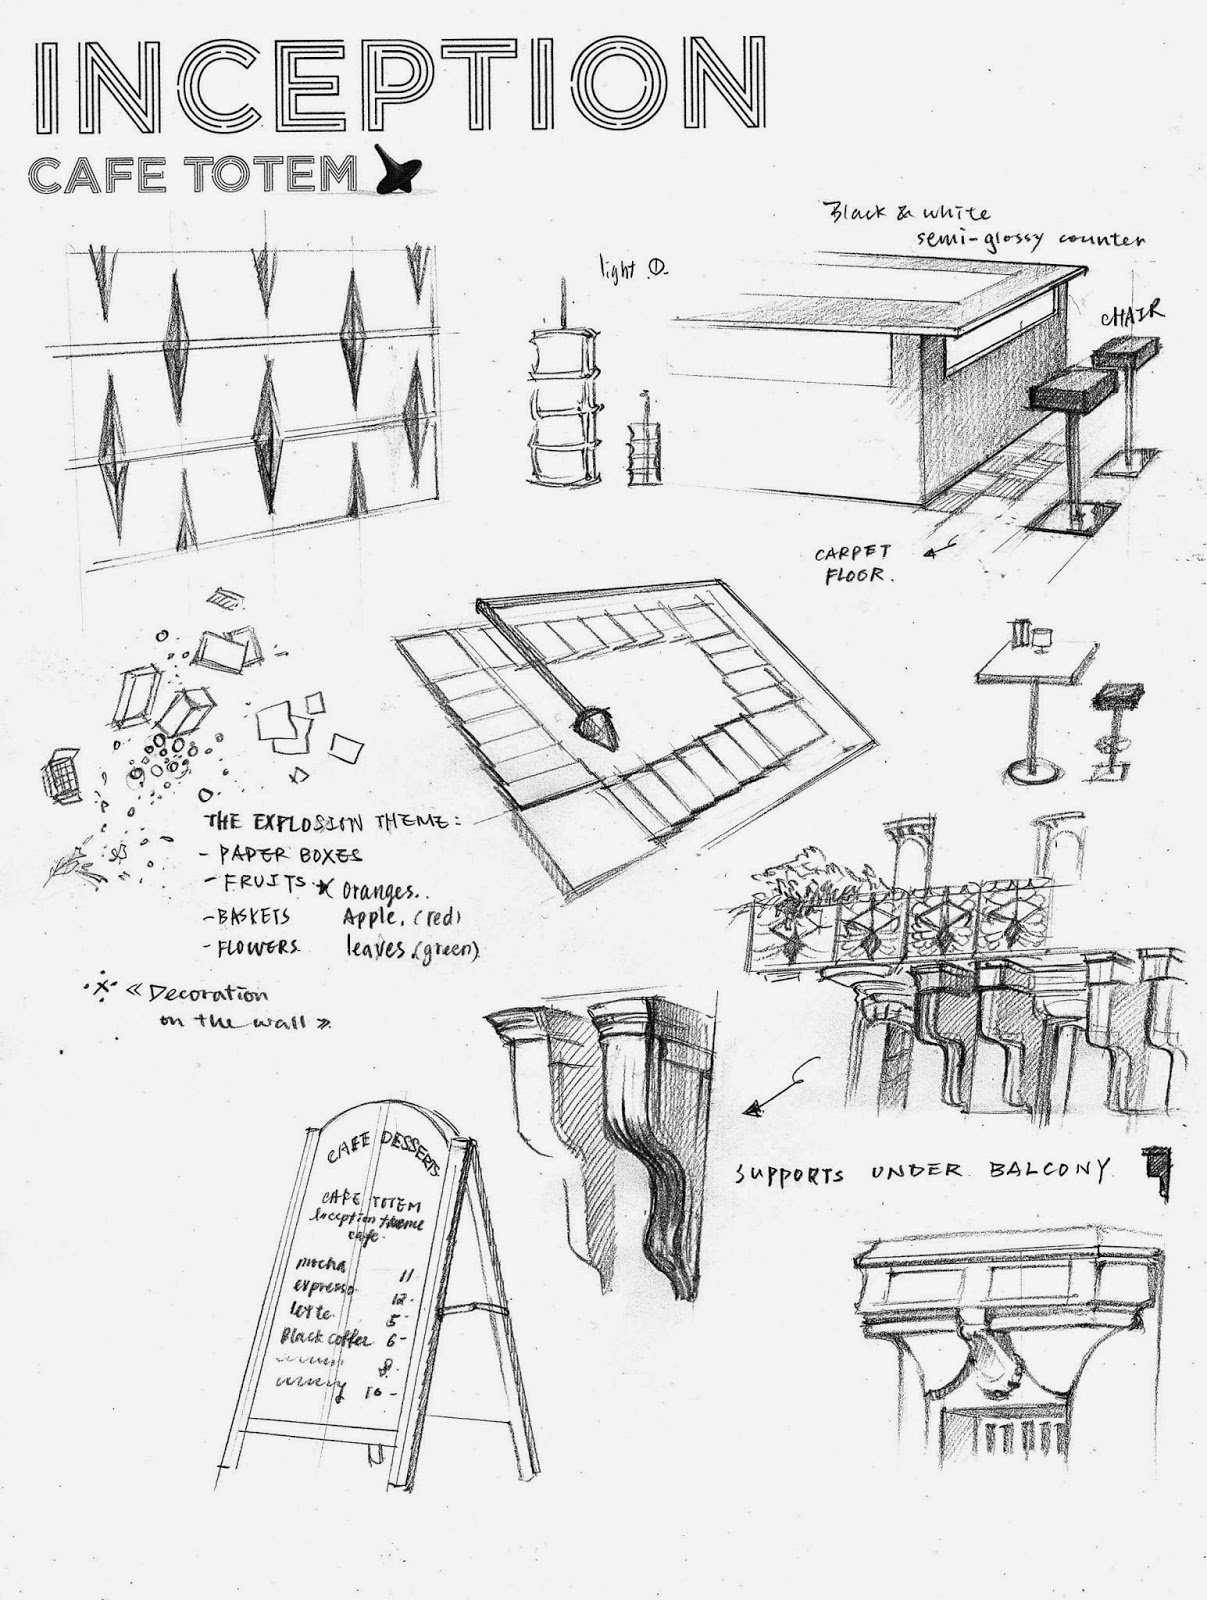 INCEPTION
CAFE TOTEM
Black & white
semi-glossy counter
light ①
CHAIR
CARPET
FLOOR.
THE EXPLOSION THEME:
- PAPER BOXES
- FRUITS * Oranges..
- BASKETS Apple. (red)
- FLOWERS leaves.(green)
※ «Decoration
on the wall».
SUPPORTS UNDER BALCONY
CAFE DESSERTS
CAFE TOTEM
Inception theme
cafe.
mocha 11
expresso 12-
latte 5-
Black coffee 6-
8-
10-